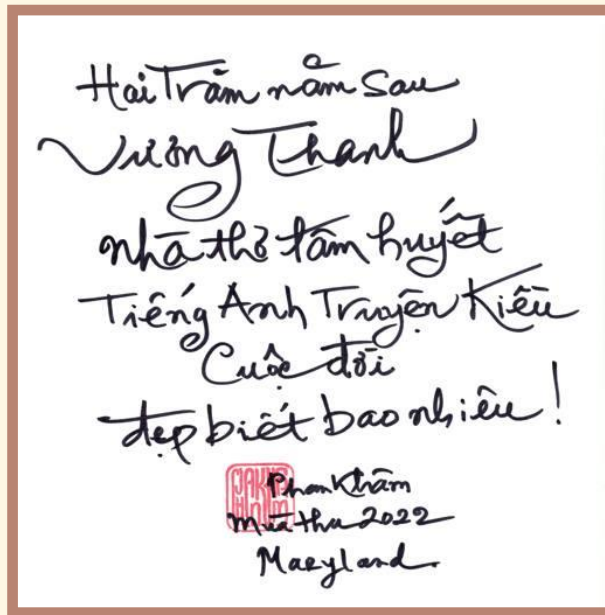 Hai Trăm năm sau
Vương Thanh
nhà thơ tâm huyết
Tiếng Anh Truyện Kiều
Cuộc đời
đẹp biết bao nhiêu!
Phan Khâm
mùa thu 2022
Maryland.